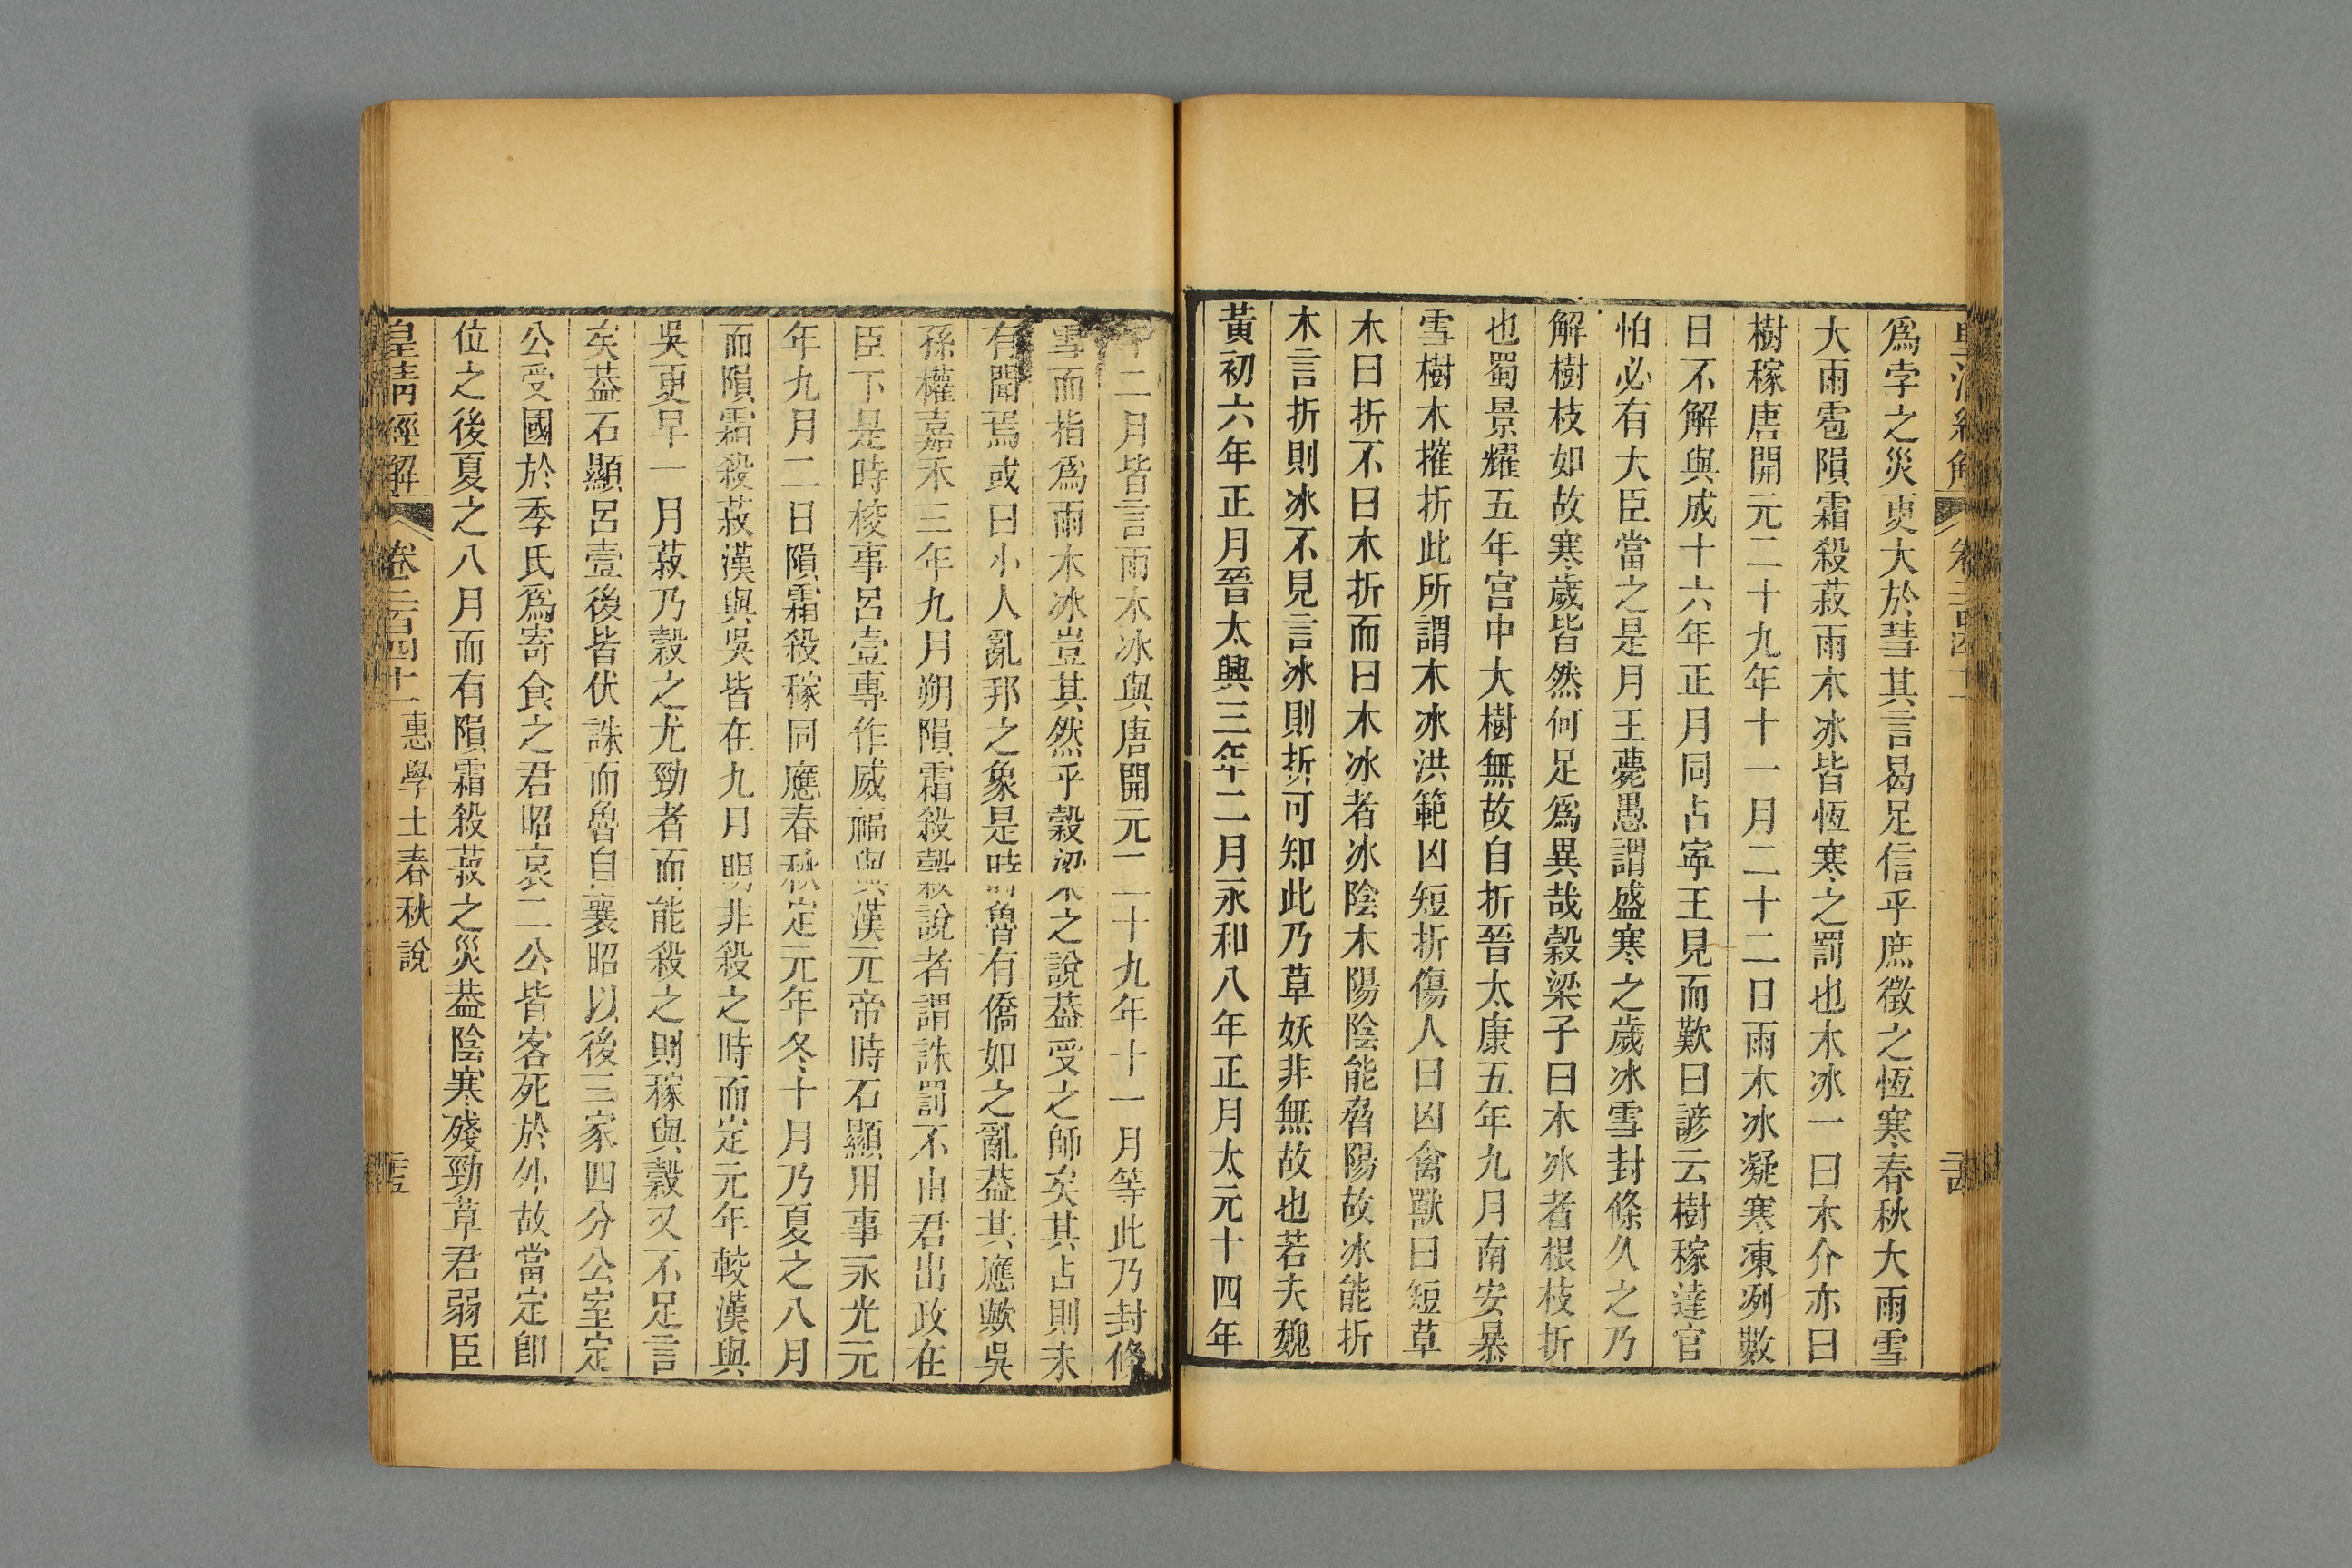 爲孛之災更大於彗其言曷足信乎庶徵之恆寒春秋大雨雪
大雨雹隕霜殺菽雨木冰皆恆寒之罰也木冰一曰木介亦曰
樹稼唐開元二十九年十一月二十二日雨木冰凝寒凍冽數
日不解與成十六年正月同占寧王見而歎曰諺云樹稼達官
怕必有大臣當之是月王薨愚謂盛寒之歲冰雪封條久之乃
解樹枝如故寒歲皆然何足爲異哉穀梁子曰木冰者根枝折
也蜀景耀五年宮中大樹無故自折晉太康五年九月南安暴
雪樹木摧折此所謂木冰洪範凶短折傷人曰凶禽獸曰短草
木曰折不曰木折而曰木冰者冰陰木陽陰能脅陽故冰能折
木言折則冰不見言冰則折可知此乃草妖非無故也若夫魏
黃初六年正月晉太興三年二月永和八年正月太元十四年
十二月皆言雨木冰與唐開元二十九年十一月等此乃封條
雪而指爲雨木冰豈其然乎穀梁之說葢受之師矣其占則未
有聞焉或曰小人亂邦之象是時魯有僑如之亂葢其應歟吳
孫權嘉禾三年九月朔隕霜殺穀說者謂誅罰不由君出政在
臣下是時校事呂壹專作威福與漢元帝時石顯用事永光元
年九月二日隕霜殺稼同應春秋定元年冬十月乃夏之八月
而隕霜殺菽漢與吳皆在九月明非殺之時而定元年較漢與
吳更早一月菽乃穀之尤勁者而能殺之則稼與穀又不足言
矣葢石顯呂壹後皆伏誅而魯自襄昭以後三家四分公室定
公受國於季氏爲寄食之君昭哀二公皆客死於外故當定卽
位之後夏之八月而有隕霜殺菽之災葢陰寒殘勁草君弱臣
皇清經解 卷二百四十一 惠學士春秋說